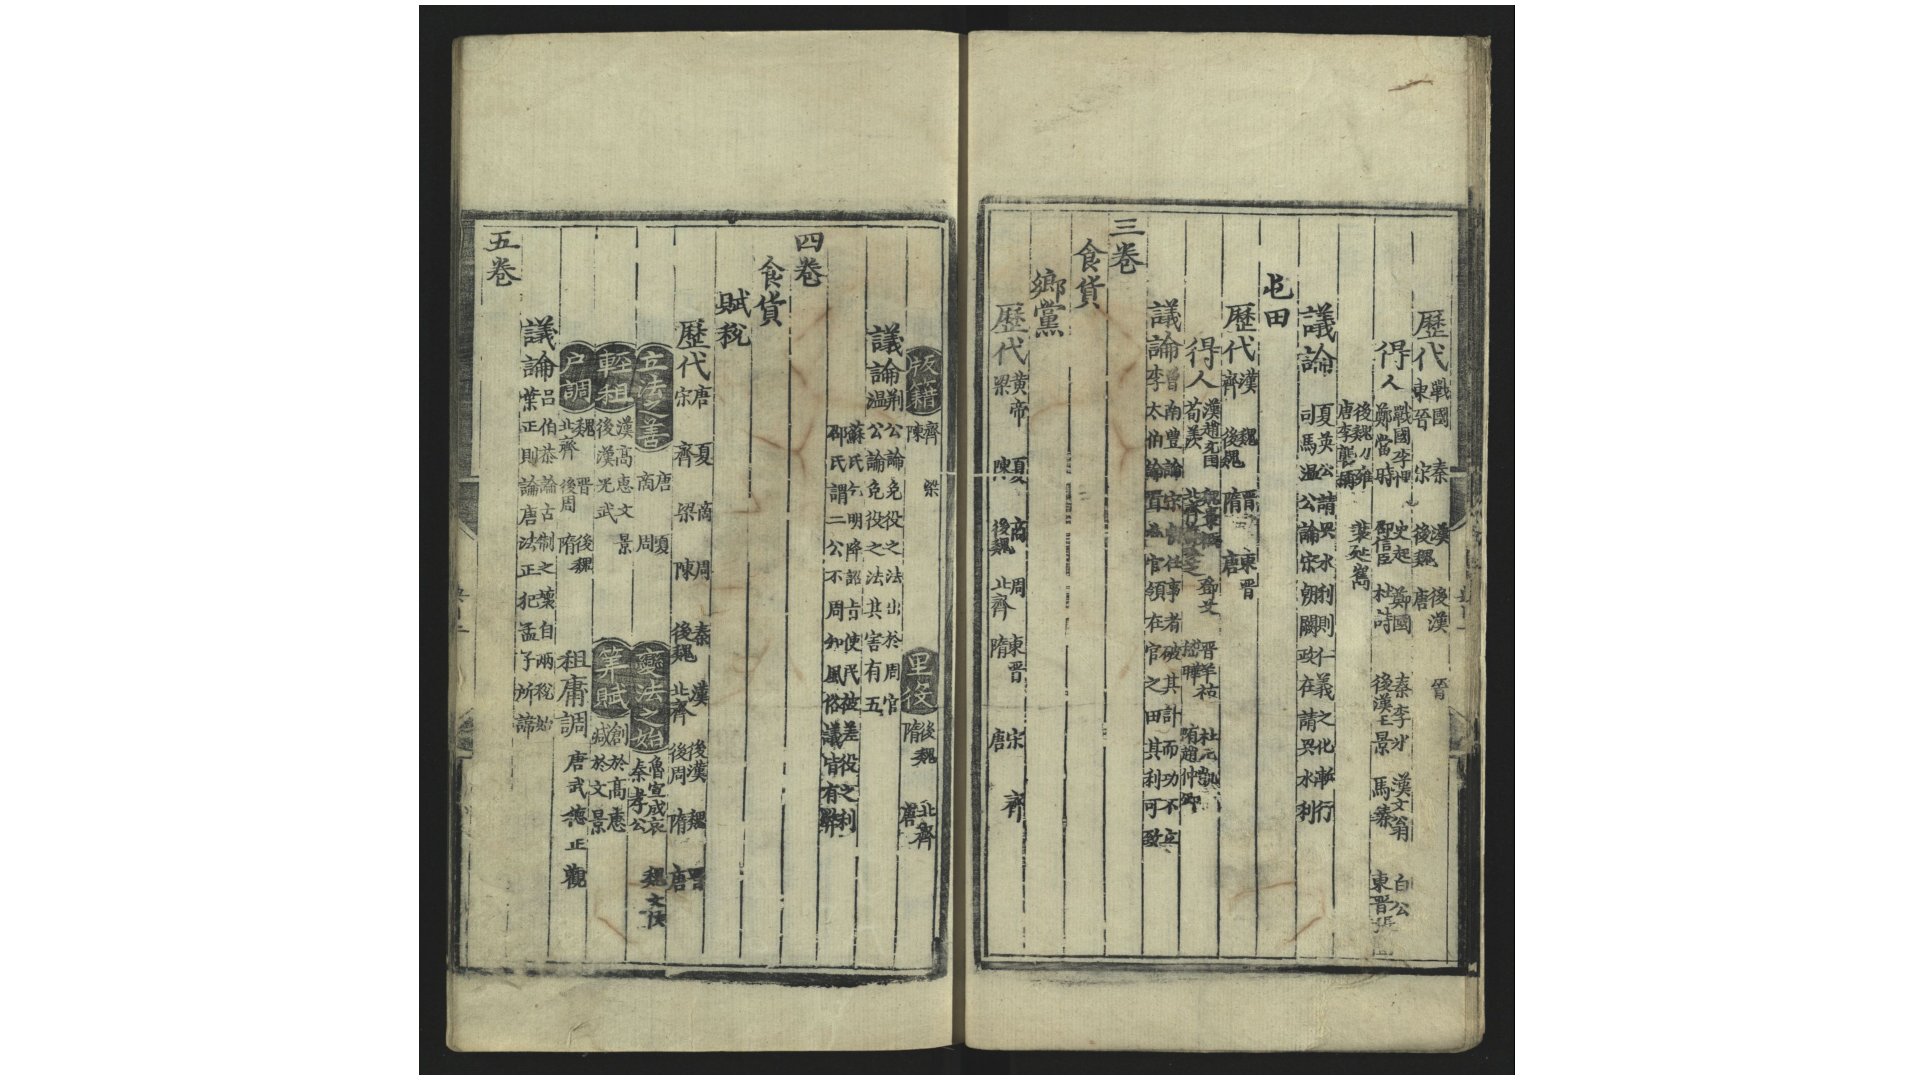 歷代 戰國 秦 漢 後漢 晉
東晉 宋 後魏 唐
得人 戰國李悝 史起 鄭國 秦李冰 漢文翁 白公
鄭當時 邵信臣 杜詩 後漢王景 馬臻 東晉張
後魏刁雍 裴延寯
唐李襲稱
議論 夏英公請興水利則仁義之化漸行
司馬溫公論宋朝闕政在請興水利
屯田
歷代 漢 魏 晉 東晉
齊 後魏 隋 唐
得人 漢趙充國 魏棗祗 鄧艾 晉羊祜 杜元凱
荀羨 隋趙仲卿
議論 曾南豐論宋朝任事者破其計而功不立
李太伯論置為官領在官之田其利可致
三卷
食貨
鄉黨
歷代 黃帝 夏 商 周 東晉 宋 齊
梁 陳 後魏 北齊 隋 唐
版籍 齊 梁 里役 後魏 北齊
陳 隋 唐
議論 荆公論免役之法出於周官
溫公論免役之法其害有五
蘇氏今明降詔旨使民披差役之利
邵氏謂二公不周知風俗議皆有弊
四卷
食貨
賦稅
歷代 唐 夏 商 周 秦 漢 後漢 魏 晉
宋 齊 梁 陳 後魏 北齊 後周 隋 唐
立法之善 唐 夏 變法之始 魯宣成哀 魏文侯
商 周 秦孝公
輕租 漢高惠文景 筭賦 創於高惠
後漢光武 減於文景
户調 魏 晉 後魏 租庸調 唐武德正觀
北齊 後周 隋
議論 呂伯恭論古制之壞自兩稅始
葉正則論唐法正犯孟子所諦
五卷